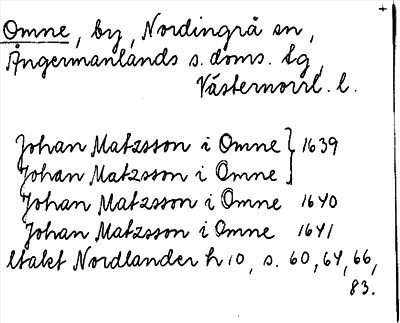 Omne, by, Nordingrå sn,
Ångermanlands s. doms. tg,
Västernorrl. l.
Johan Matzsson i Omne } 1639
Johan Matzsson i Omne
Johan Matzsson i Omne 1640
Johan Matzsson i Omne 1641
Utakt Nordlander h 10, s. 60, 64, 66,
83.